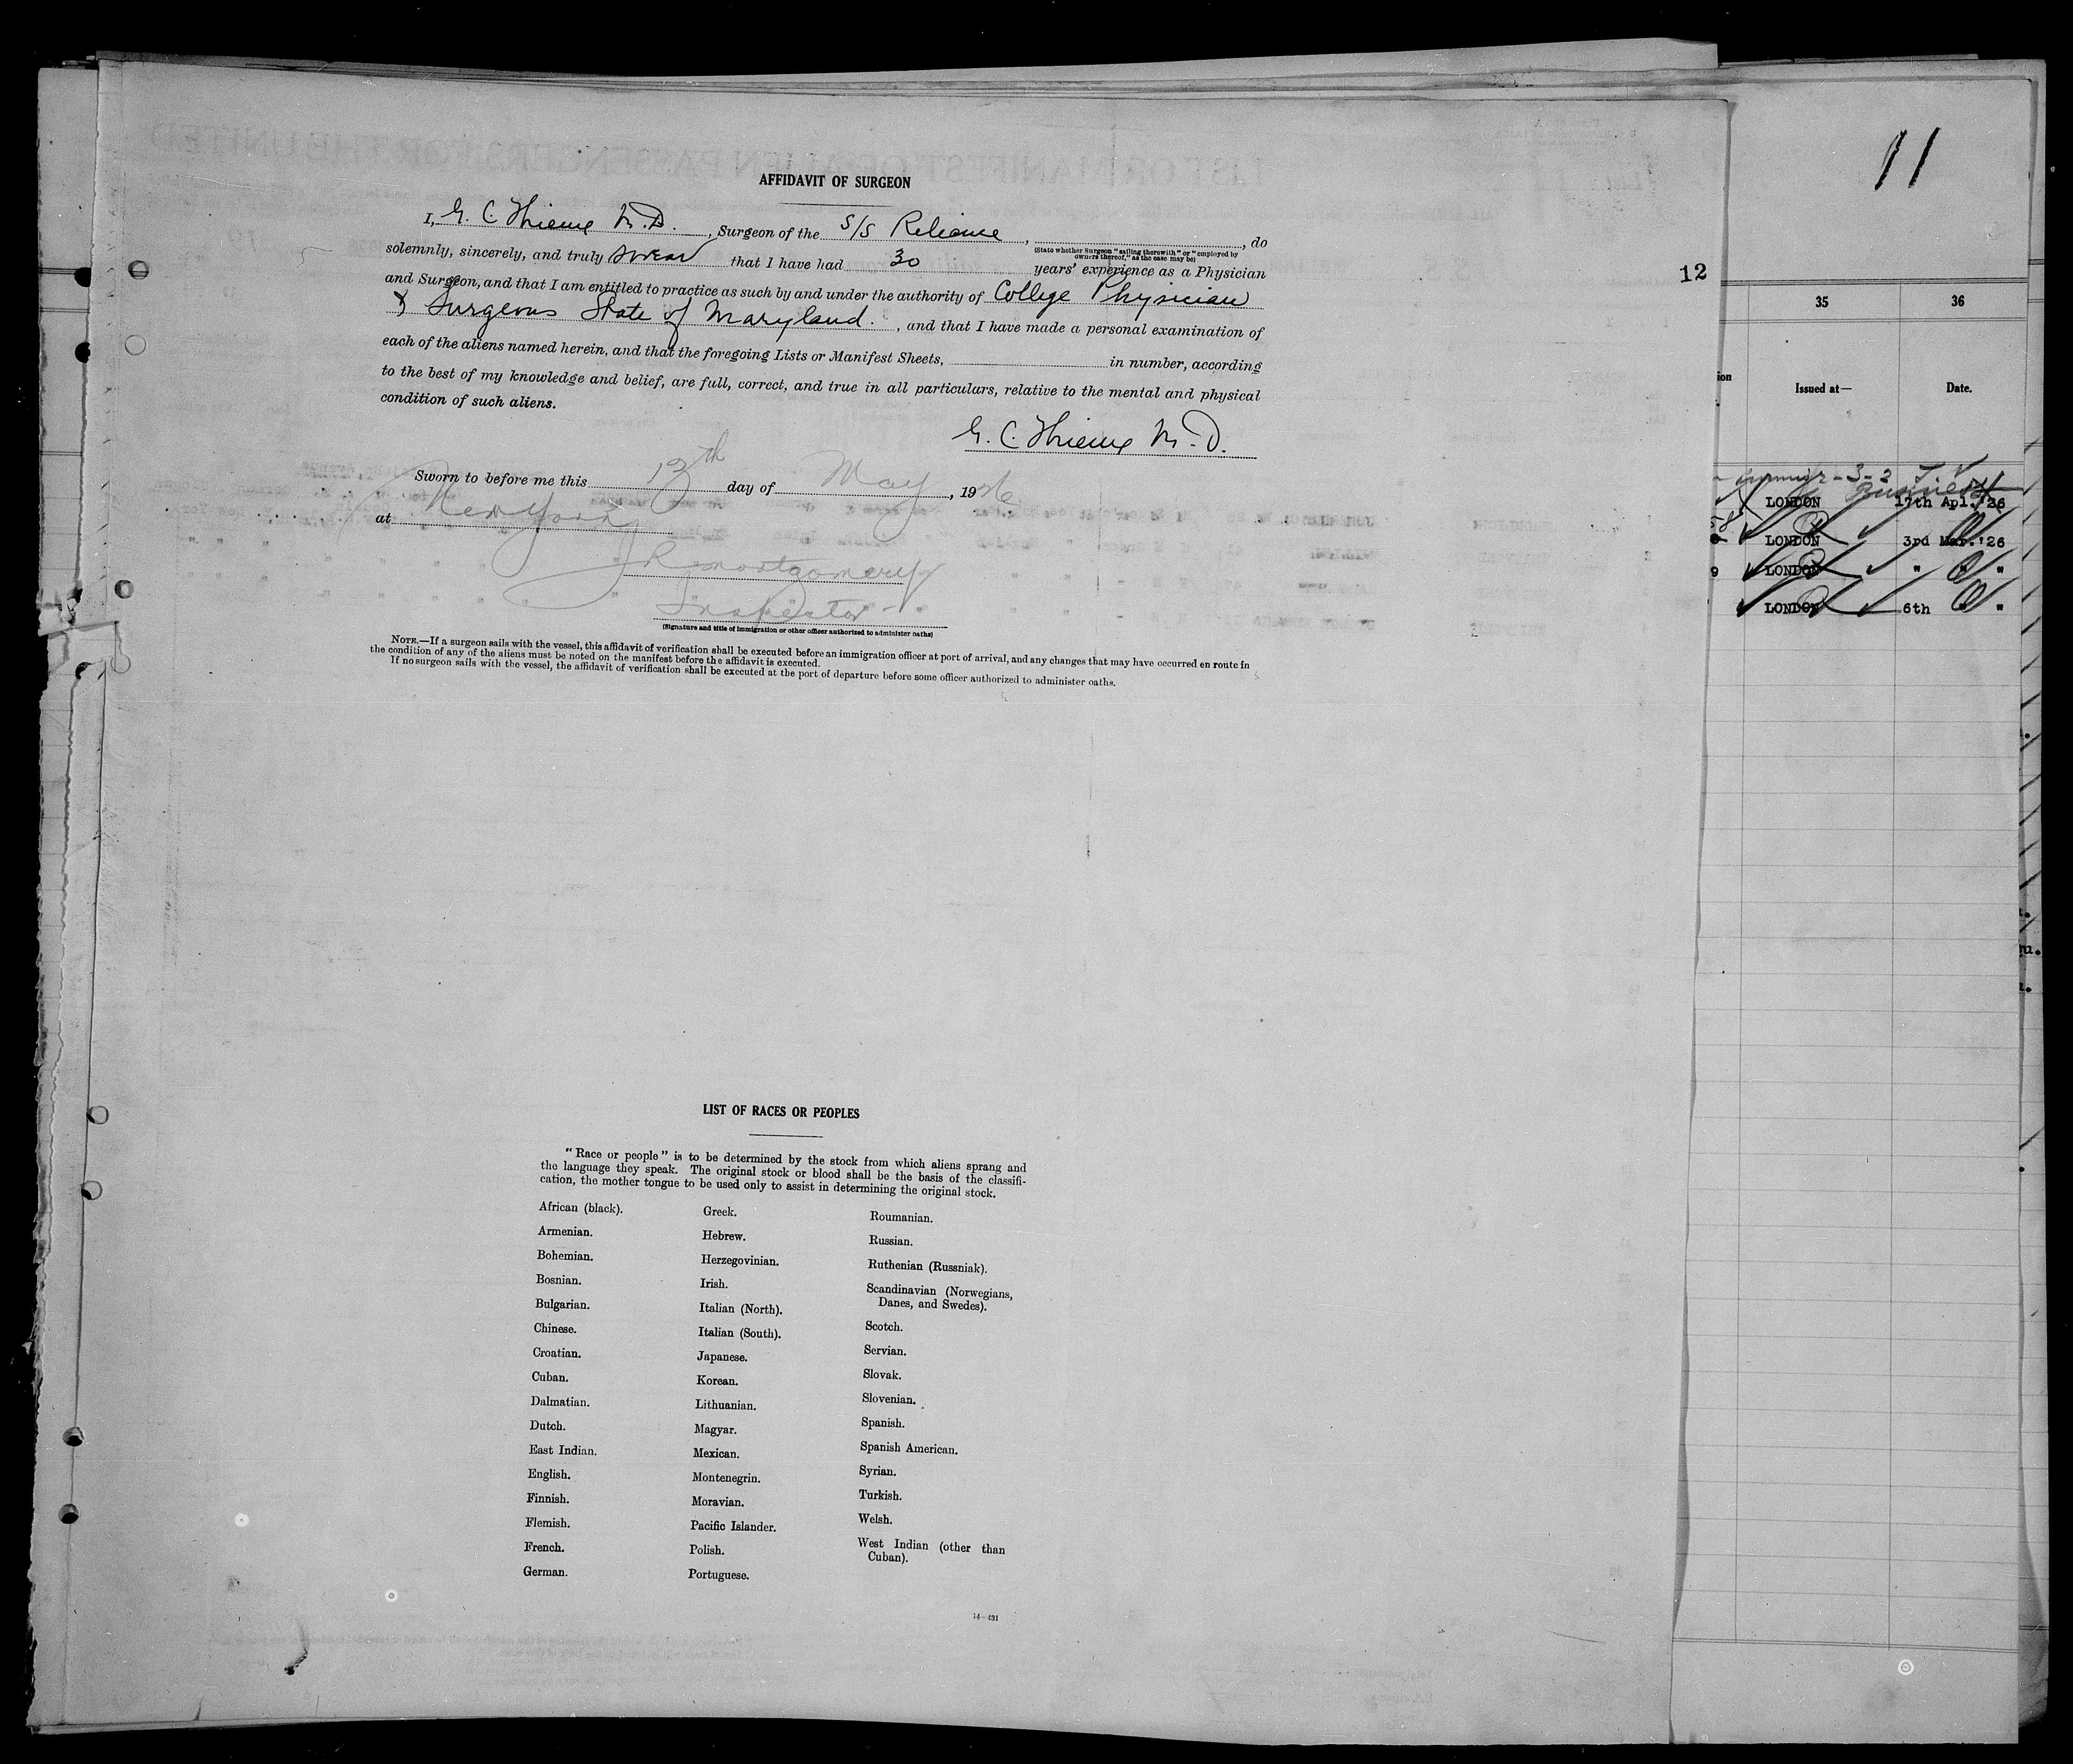 11
12
AFFIDAVIT OF SURGEON
I, G. C. Thieme M.D. , Surgeon of the S/S Reliance , , do
(State whether Surgeon "sailing therewith" or "employed by
owners thereof," as the case may be)
solemnly, sincerely, and truly swear that I have had 30 years' experience as a Physician
and Surgeon, and that I am entitled to practice as such by and under the authority of College Physician
& Surgeons State of Maryland. , and that I have made a personal examination of
each of the aliens named herein, and that the foregoing Lists or Manifest Sheets, in number, according
to the best of my knowledge and belief, are full, correct, and true in all particulars, relative to the mental and physical
condition of such aliens.
G. C. Thieme M.D.
Sworn to before me this 13th day of May , 1926
at New York
J R Montgomery
Inspector
(Signature and title of immigration or other officer authorized to administer oaths)
NOTE.—If a surgeon sails with the vessel, this affidavit of verification shall be executed before an immigration officer at port of arrival, and any changes that may have occurred en route in
the condition of any of the aliens must be noted on the manifest before the affidavit is executed.
If no surgeon sails with the vessel, the affidavit of verification shall be executed at the port of departure before some officer authorized to administer oaths.
LIST OF RACES OR PEOPLES
"Race or people" is to be determined by the stock from which aliens sprang and
the language they speak. The original stock or blood shall be the basis of the classifi-
cation, the mother tongue to be used only to assist in determining the original stock.
African (black).
Armenian.
Bohemian.
Bosnian.
Bulgarian.
Chinese.
Croatian.
Cuban.
Dalmatian.
Dutch.
East Indian.
English.
Finnish.
Flemish.
French.
German.
Greek.
Hebrew.
Herzegovinian.
Irish.
Italian (North).
Italian (South).
Japanese.
Korean.
Lithuanian.
Magyar.
Mexican.
Montenegrin.
Moravian.
Pacific Islander.
Polish.
Portuguese.
Roumanian.
Russian.
Ruthenian (Russniak).
Scandinavian (Norwegians,
Danes, and Swedes).
Scotch.
Servian.
Slovak.
Slovenian.
Spanish.
Spanish American.
Syrian.
Turkish.
Welsh.
West Indian (other than
Cuban).
14—431
35 36
Issued at— Date.
LONDON 17th Apl. '26
LONDON 3rd Mar. '26
LONDON " " "
LONDON 6th " "